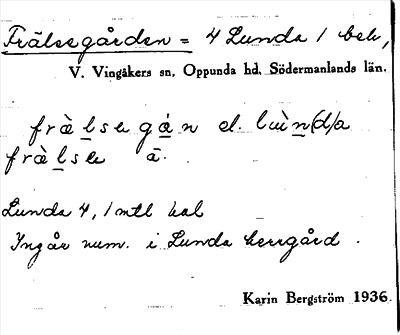 Frälsegården = 4 Lunda 1 bek,
V. Vingåkers sn, Oppunda hd, Södermanlands län.
frà̀lse gá̱n el. lùn(d)a
fràlse ā.
Lunda 4, 1 mtl kal
Ingår num. i Lunda herrgård.
Karin Bergström 1936.